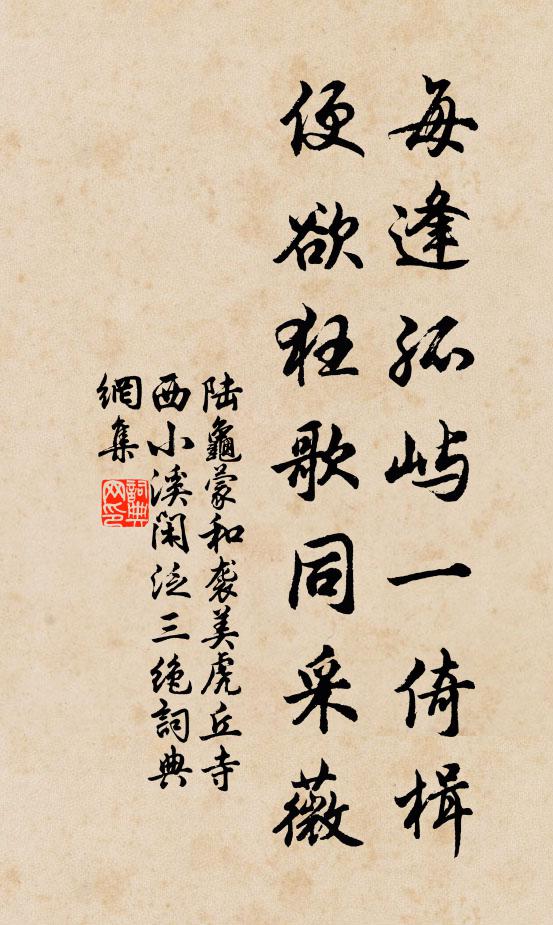 每逢孤屿一倚楫
便欲狂歌同采薇
陆龜蒙和袭美虎丘寺
西小溪闲泛三绝詞典
網集
詞典网印